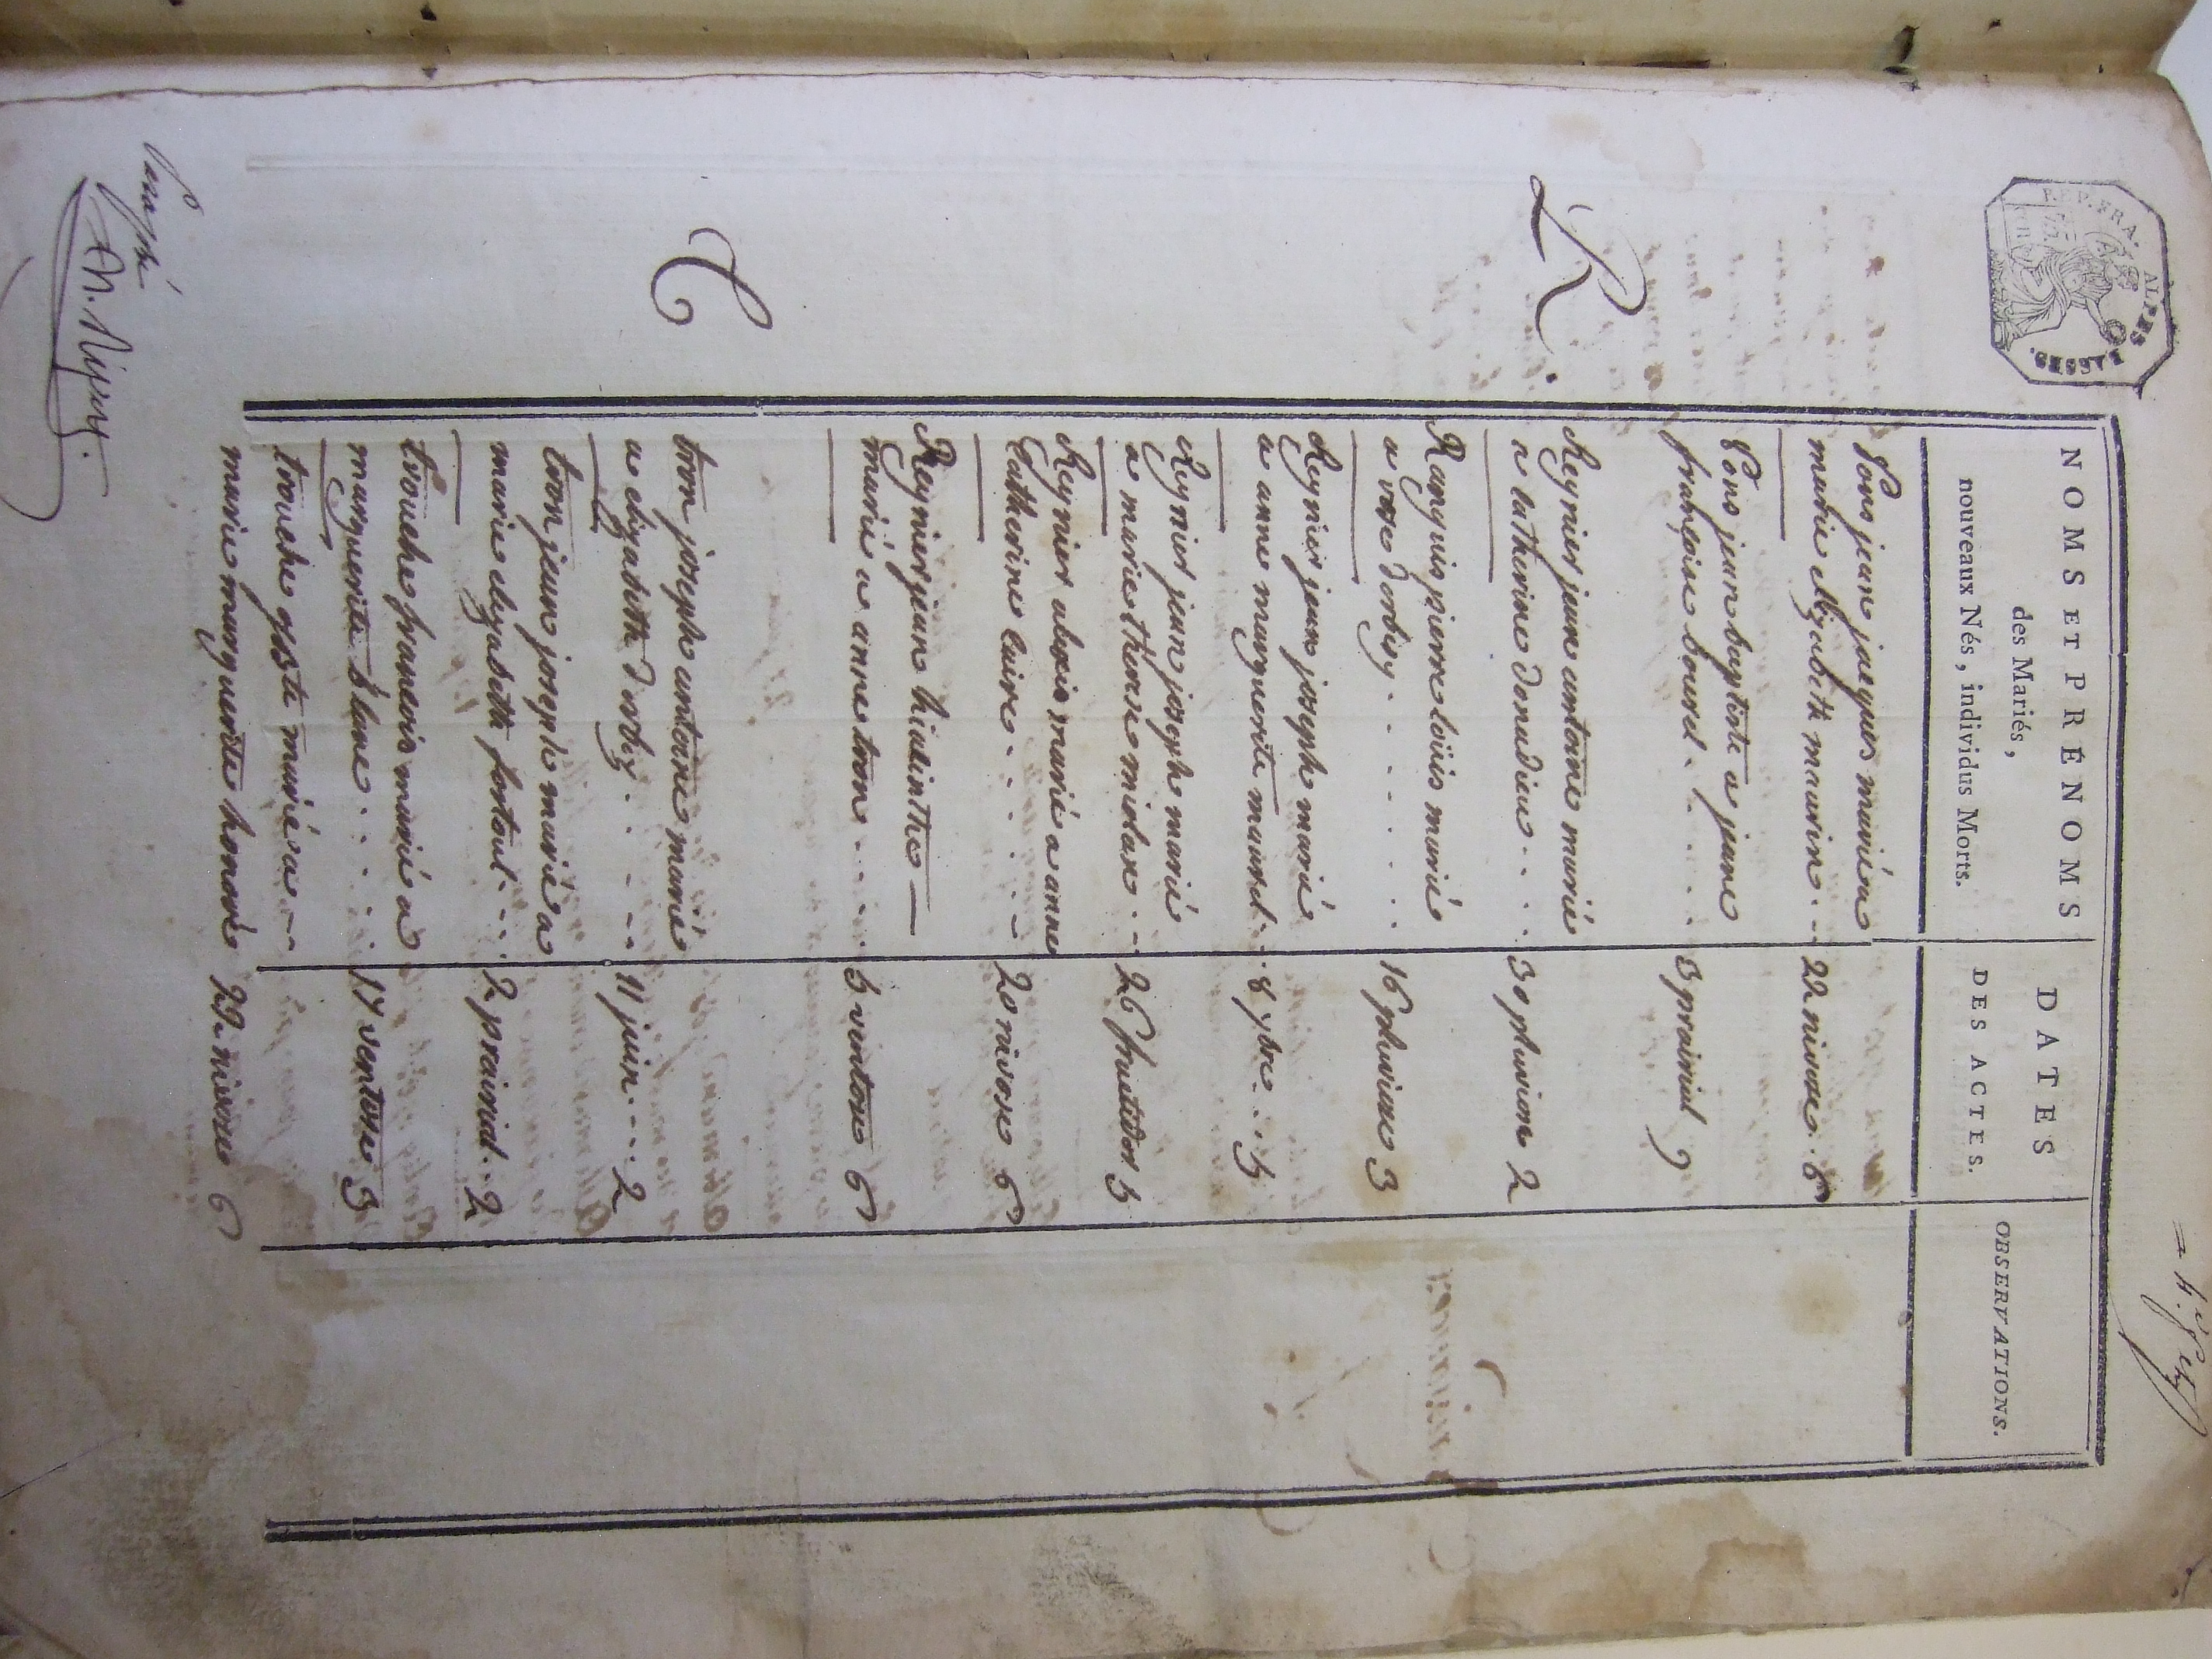 REP. FRA. ALPES BASSES.
NOMS ET PRÉNOMS
des Mariés,
nouveaux Nés, individus Morts.
DATES
DES ACTES.
OBSERVATIONS.
Pons jean jacques marié a
marie elizabeth maurin . . 22 nivose . 6
Pons jean baptiste a jeane
françoise bourel . . . . 3 prairial 9
R.
Reynier jean antoine marié
a catherine donadieu . . . 30 pluviose 2
Ranguis pierre loüis marié
a rose dorbey . . . . . 16 pluviose 3
Reynier jean joseph marié
a anne marguerite maurel . . 8 7bre . . 5
Reynier jean joseph marié
a marie therese miolan . . 26 fructidor 5
Reynier alexis marié a anne
Catherine Caire . . . . 20 nivose 6
Reynier jean hiacinthe
marié a anne tron . . . . 5 ventose 6
T
tron joseph antoine marié
a elizabeth dorbey . . . . 11 juin . . . 2
tron jean joseph marié a
marie elizabeth fortoul . . . 2 prairial . . 2
trouche francois marié a
marguerite blanc . . . . 17 ventose 3
trouche marié a
marie marguerite honoré 29 nivose 6
Paraphé